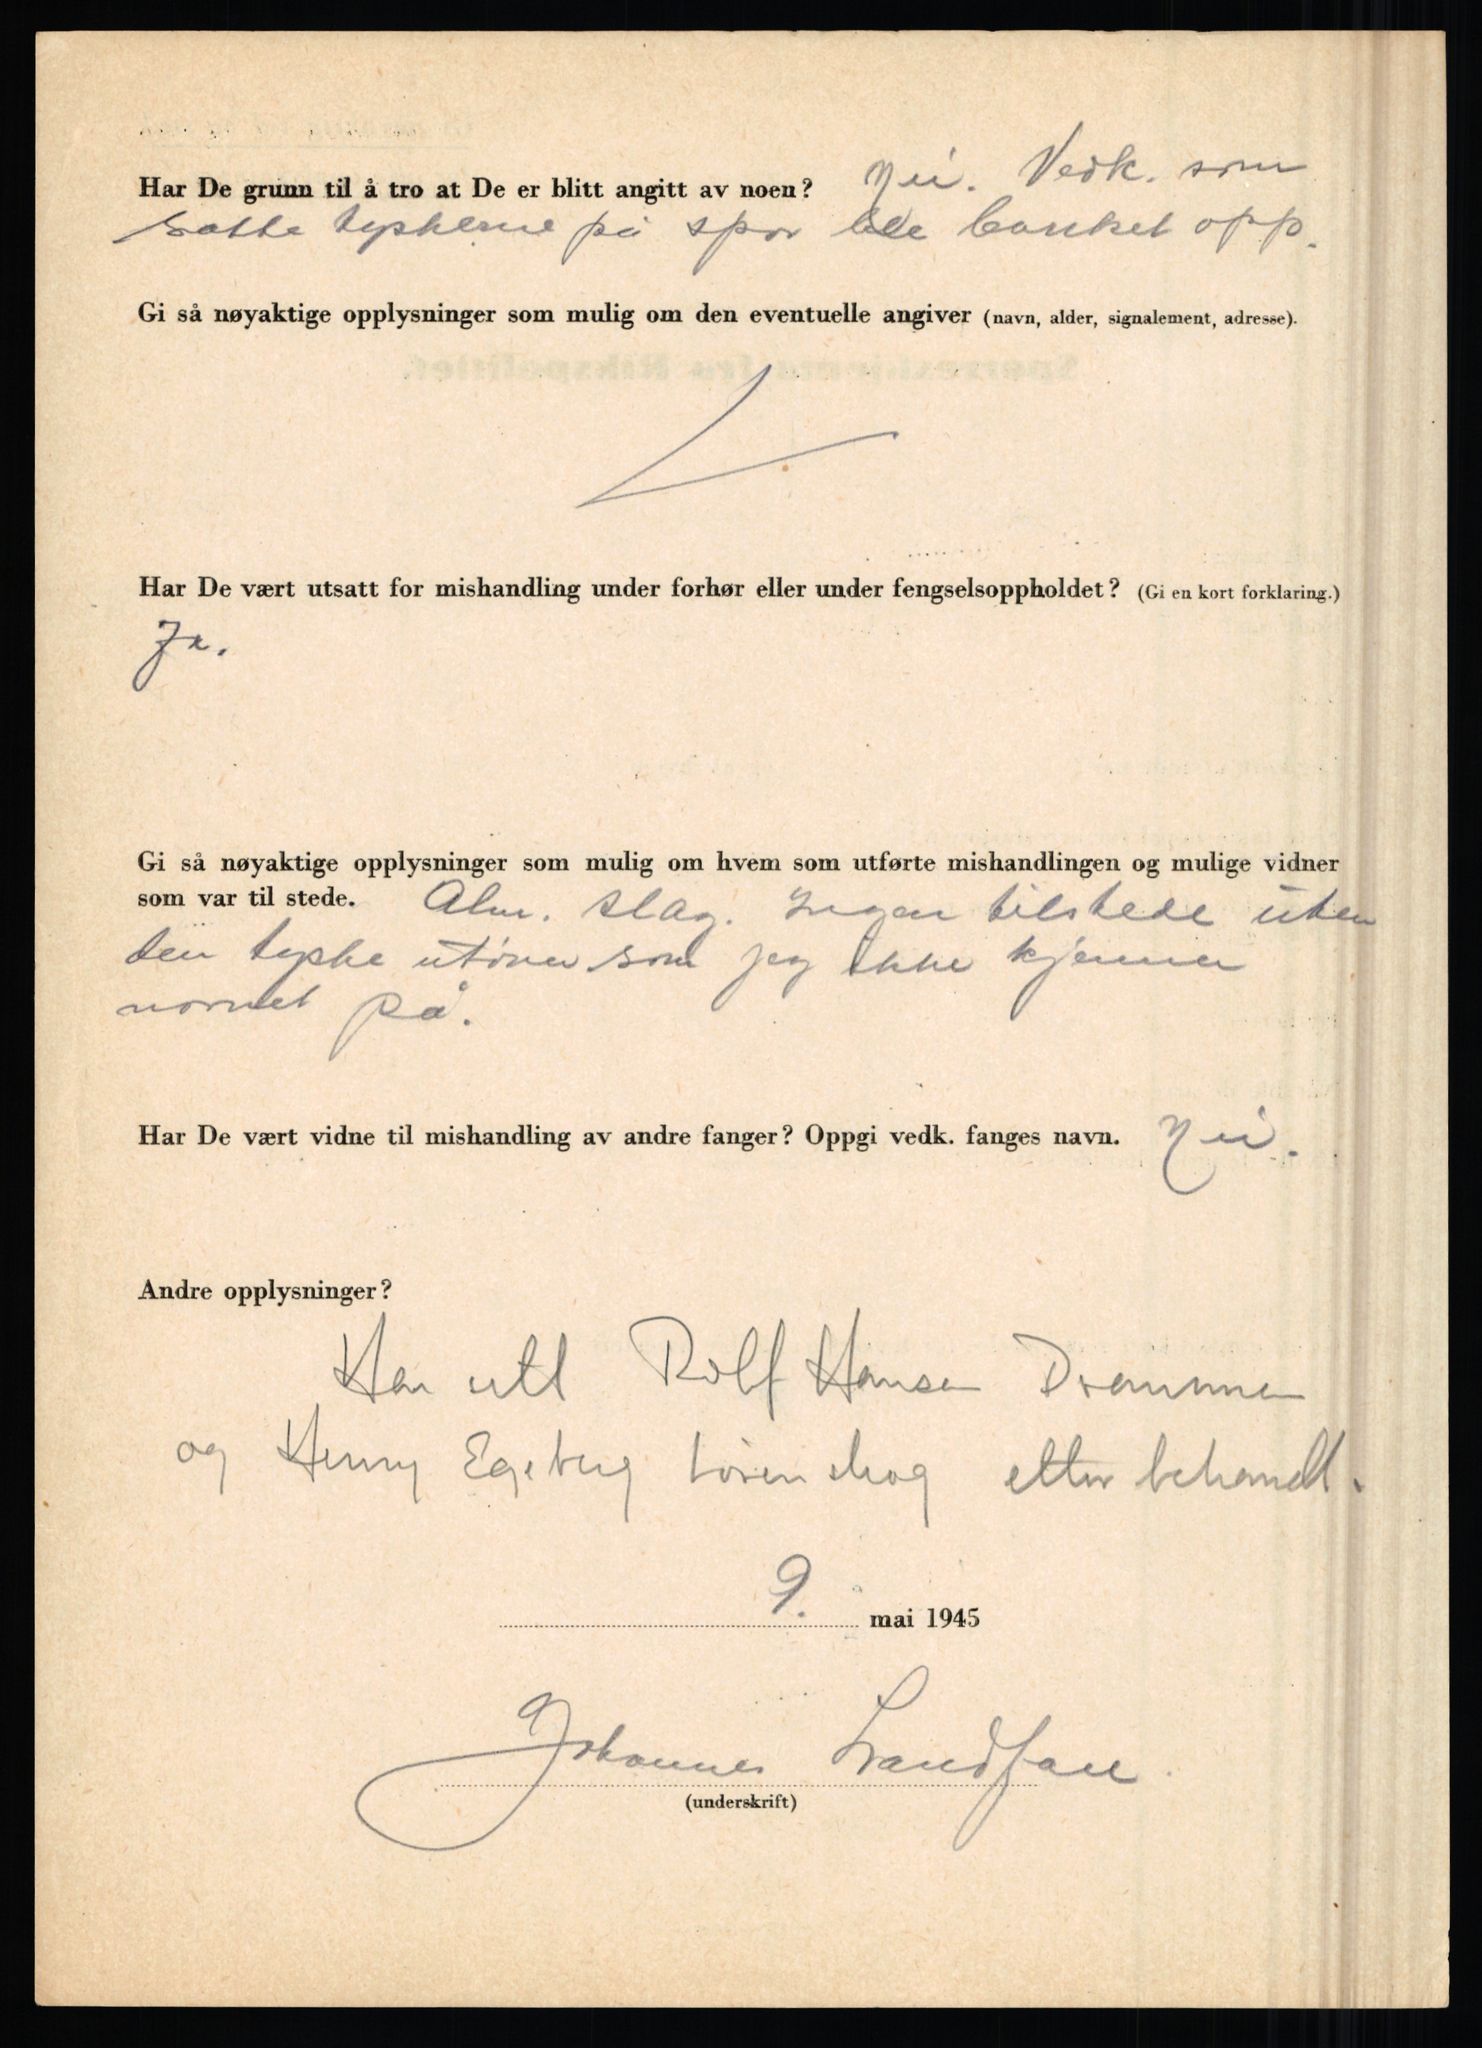 Har De grunn til å tro at De er blitt angitt av noen? Nei. Vedk. som
satte tyskerne på spor ble banket opp.
Gi så nøyaktige opplysninger som mulig om den eventuelle angiver (navn, alder, signalement, adresse).
Har De vært utsatt for mishandling under forhør eller under fengselsoppholdet? (Gi en kort forklaring.)
Ja.
Gi så nøyaktige opplysninger som mulig om hvem som utførte mishandlingen og mulige vidner
som var til stede. Alm. slag. Ingen tilstede uten
den tyske utöver som jeg ikke kjenner
navnet på.
Har De vært vidne til mishandling av andre fanger? Oppgi vedk. fanges navn. Nei.
Andre opplysninger?
Har utl Rolf Hansen Drammen
og Henry Egeberg Lörenskog etter behandl.
9. mai 1945
Johannes
(underskrift)